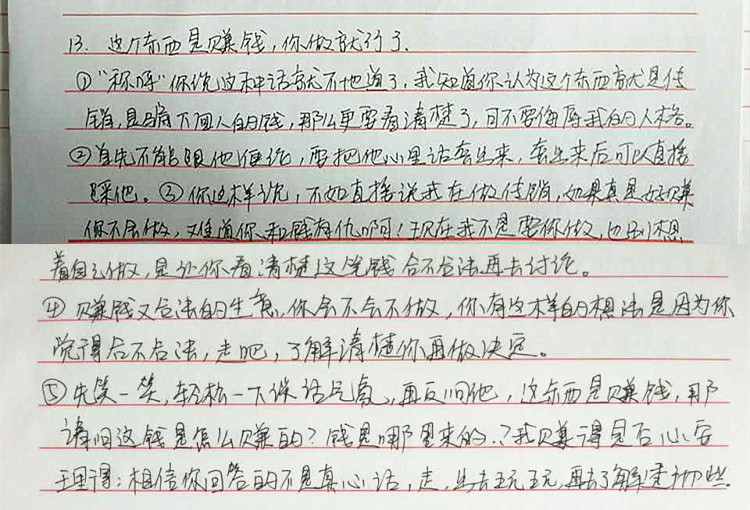 13. 这个东西是赚钱，你做就行了。
①“称呼”你说这种话就不地道了，我知道你认为这个东西就是传
销，是骗下面人的钱，那么更要看清楚了，可不要侮辱我的人格。
②首先不能跟他便说，要把他心里话套出来，套出来后可以直接
踩他。③你这样说，不如直接说我在做传销，如果真是好赚
你不会做，难道你和钱有仇啊！现在我不是要你做，也别想
着自己做，是让你看清楚这笔钱合不合法再去讨论。
④赚钱又合法的生意，你会不会不做，你有这样的想法是因为你
觉得合不合法，走吧，了解清楚你再做决定。
⑤先笑一笑，轻松一下谈话气氛，再反问他，这东西是赚钱，那
请问这钱是怎么赚的？钱是哪里来的？我赚得是否心安
理得；相信你回答的不是真心话，走，出去玩玩，再去了解更多些。